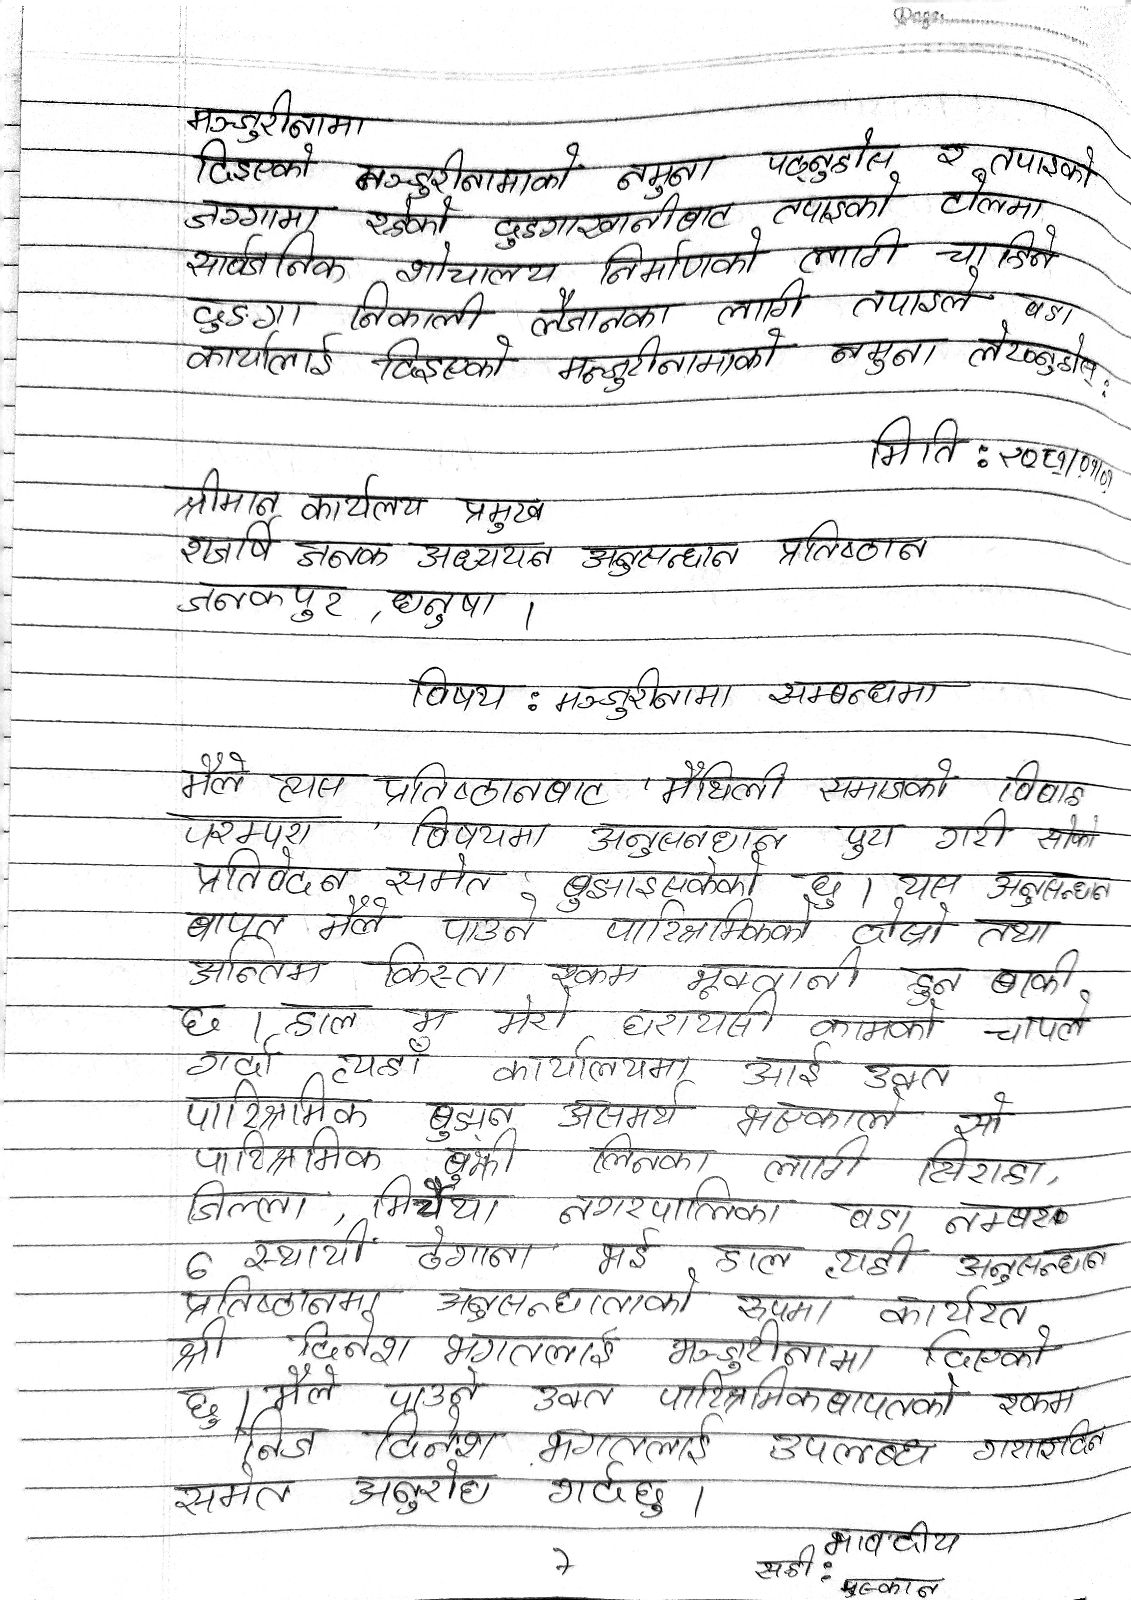 Page:
मञ्जुरीनामा
दिइएको मञ्जुरीनामाको नमुना पढ्नुहोस र तपाइको
जग्गामा रहेको ढुङगाखानीबाट तपाइको टोलमा
सार्वजनिक शौचालय निर्माणको लागी चाहिने
ढुङगा निकाली लैजानका लागि तपाइले वडा
कार्यालाई दिइएको मन्जुरीनामाको नमुना लेख्नुहोस्:
मिति : २०८१/०१/०१
श्रीमान् कार्यलय प्रमुख
राजर्षि जनक अध्ययन अनुसन्धान प्रतिष्ठान
जनकपुर , धनुषा ।
विषय : मञ्जुरीनामा सम्बन्धमा
मैले त्यस प्रतिष्ठानबाट ' मैथिली समाजको विवाह
परम्परा ' विषयमा अनुसनधान पुरा गरी सोको
प्रतिवेदन समेत बुझाइसकेको छु । यस अनुसन्धान
बापत मैले पाउने पारिश्रमिकको दोस्रो तथा
अन्तिम किस्ता रकम भूक्तानी हुन बाकी
छ । हाल म मेरो घरायसी कामको चापले
गर्दा त्यहाँ कार्यालयमा आई उक्त
पारिश्रमिक बुझन असमर्थ भएकाले सो
पारिश्रमिक बुझी लिनका लागी सिराहा,
जिल्ला , मिर्चैया नगरपालिका वडा नम्बर
6 स्थायी ठेगाना भई हाल त्यही अनुसन्धान
प्रतिष्ठानमा अनुसन्धाताको रुपमा कार्यरत
श्री दिनेश भगतलाई मञ्जुरीनामा दिएको
छु । मैले पाउने उक्त पारिश्रमिकबापतको रकम
निज दिनेश भगतलाई उपलब्ध गराइदिन
समेत अनुरोध गर्दछु ।
भावदीय
सही : मुस्कान